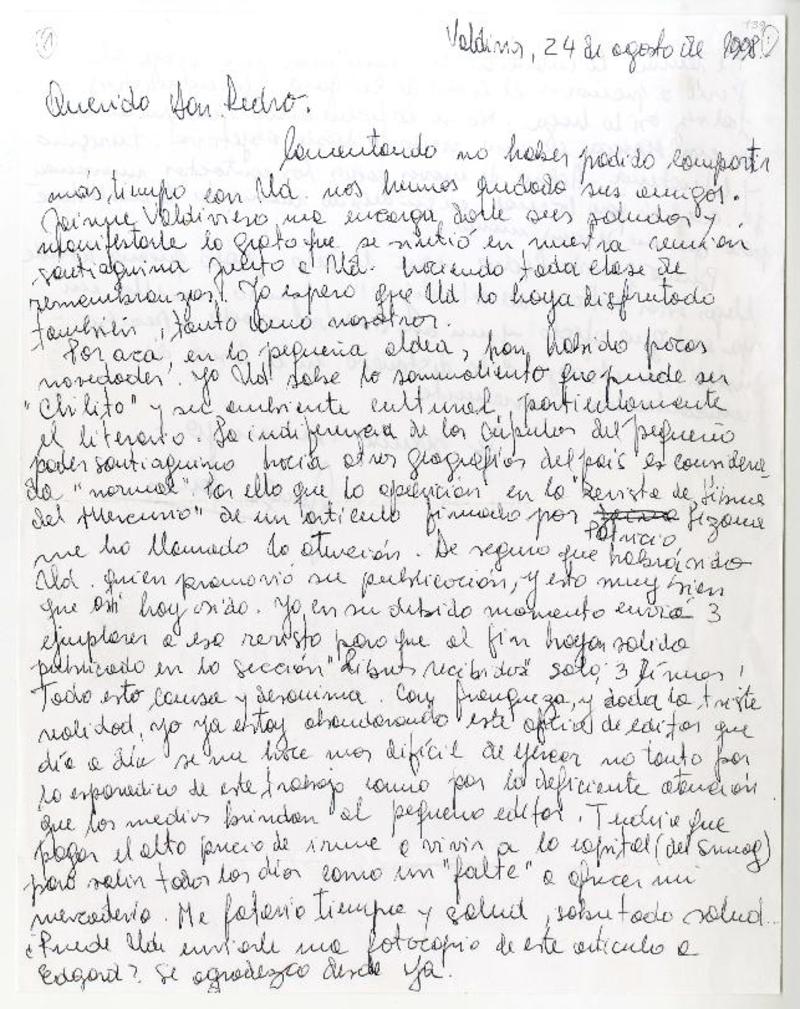 1
139
Valdivia, 24 de agosto de 1998. 1
Querido Don Pedro:
Lamentando no haber podido compartir
más tiempo con Ud nos hemos quedado sus amigos.
Jaime Valdivieso me encarga darle sus saludos y
manifestarle lo grato que se sintió en nuestra reunión
santiaguina junto a Ud. haciendo toda clase de
remembranzas. Yo espero que Ud lo haya disfrutado
también, tanto como nosotros.
Por acá, en la pequeña aldea, han habido pocas
novedades. Ya Ud sabe lo somnoliento que puede ser
"Chilito" y su ambiente cultural, particularmente
el literario. La indiferencia de las cúpulas del pequeño
poder santiaguino hacia otras geografías del país es considera-
da "normal". Por ello que la aparición en la "Revista de Libros
del Mercurio" de un artículo firmado por Lizama
Patricio
me ha llamado la atención. De seguro que habrá sido
Ud. quien promovió su publicación, y esto muy bien
que así haya sido. Yo en su debido momento envié 3
ejemplares a esa revista para que al fin hayan salido
publicado en la sección "Libros recibidos" solo, 3 líneas!
Todo esto cansa y desanima. Con franqueza, y dada la triste
realidad, yo ya estoy abandonando este oficio de editor que
día a día se me hace mas difícil de ejercer no tanto por
lo esporádico de este trabajo como por la deficiente atención
que los medios brindan al pequeño editor. Tendría que
pagar el alto precio de irme a vivir a la capital (del smog)
para salir todos los días como un "falte" a ofrecer mi
mercadería. Me faltaría tiempo y salud, sobre todo salud...
¿Puede Ud enviarle una fotocopia de este artículo a
Edgard? Se agradezco desde ya.